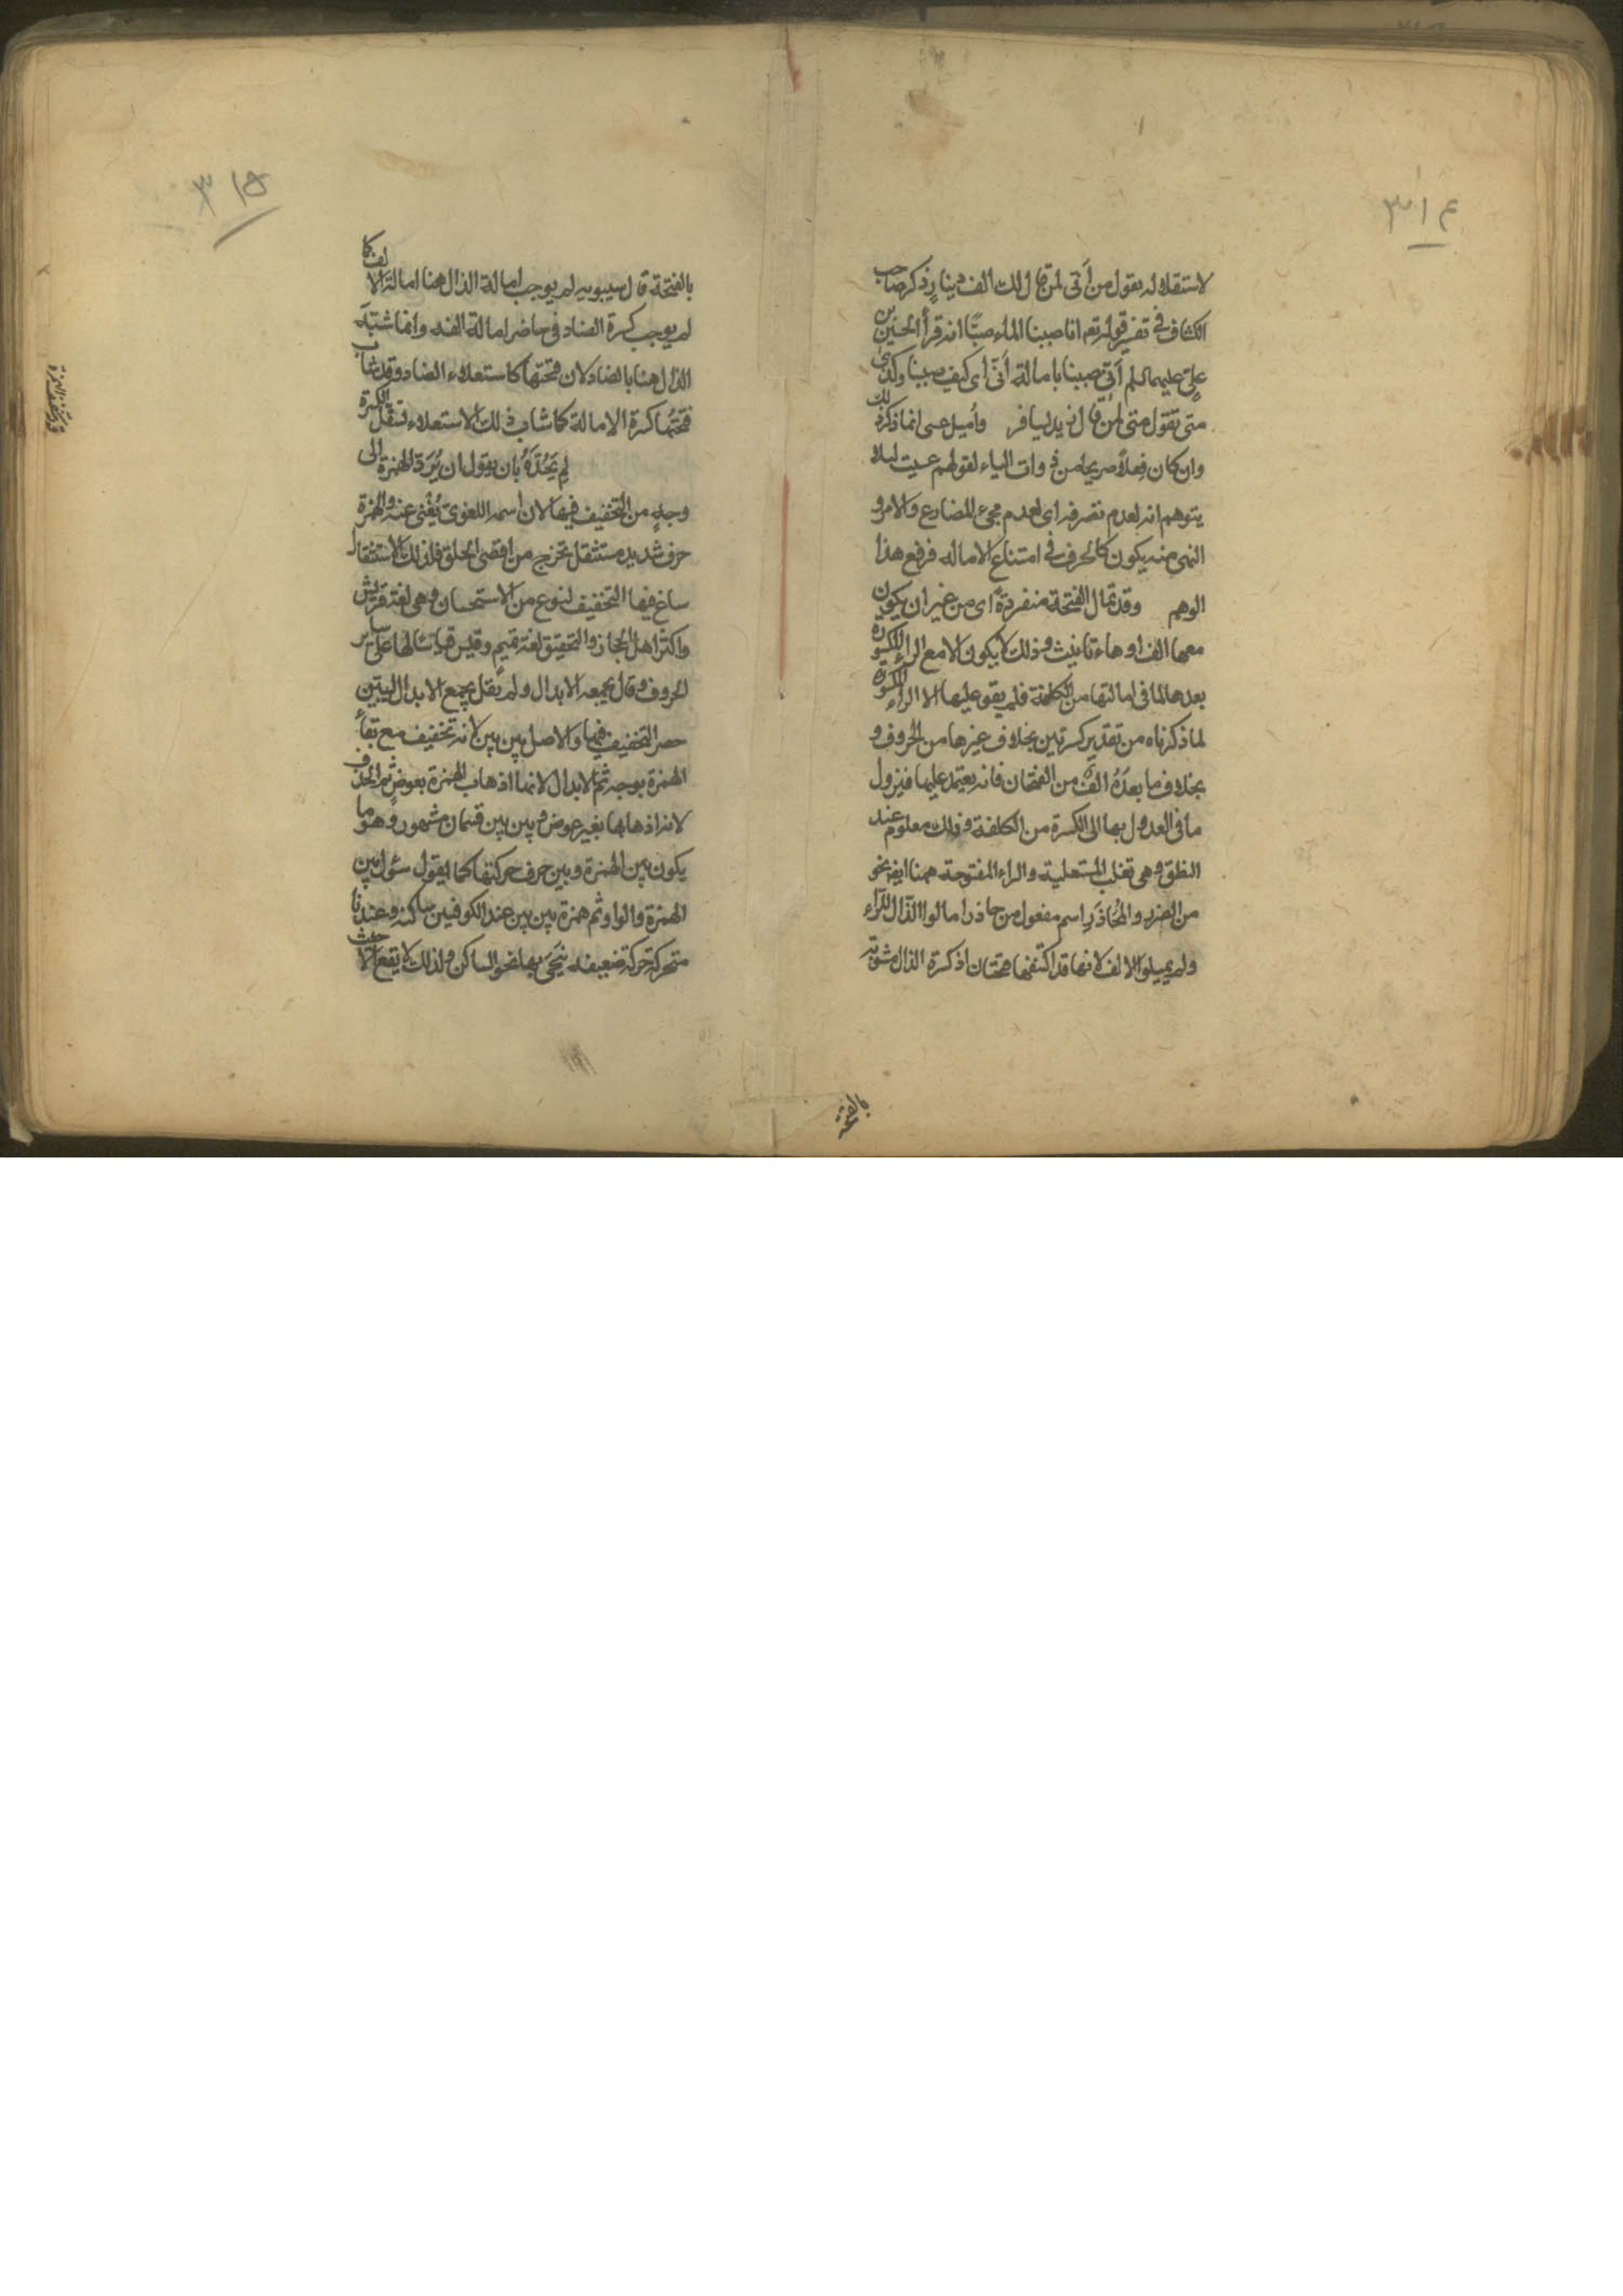 ٣١٤
لاستقلاله بقول من أنى لمن قال لك الف دينار ذكر صاحب
الكشاف في تفسير قوله تعم انا صببنا الماء صبًّا انه قرأ الحسين بن
علىّ عليهما السلم أنى صببنا بامالة أنّى اى كيف صببنا وكذى
متى تقول متى لمن قال زيد يسافر وأميل عسى انما ذكر ذلك
وان كان فعلاً صريحا من ذوات الياء لقولهم عسيت لئلا
يتوهم انه لعدم تصرفه اى لعدم مجىء المضارع والامر و
النهى منه يكون كالحرف في امتناع الاماله فرفع هذا
الوهم وقد تمال الفتحة منفردةً اى من غير ان يكون
معها الف او هاء تانيث وذلك لا يكون الا مع الراء المكسورة
بعدها لما في امالتها من الكلفة فلم يقو عليها الا الراء المكسورة
لما ذكرناه من تقدير كسرتين بخلاف غيرها من الحروف و
بخلاف ما بعدَهُ الفٌ من الفتحات فانه يعتمد عليها فيزول
ما في العدول بها الى الكسرة من الكلفة وذلك معلوم عند
النطق وهى تغلب المستعلية والراء المفتوحة ههنا ايضا نحو
من الضرر والمُحاذَرِ اسم مفعول من حاذر امالوا الذال للراء
ولم يميلوا الالف لانها قد اكتنفها فتحتان اذ كسرة الذال مشوبة
بالفتحة
٣١٥
بالفتحة قال سيبويه لم يوجب امالة الذال هنا امالة الالف كما
لم يوجب كسرة الضاد في حاضر امالة الفه وانما شبّه
الذال هنا بالضاد لان فتحتها كاستعلاء الضاد وقد شاب
فتحتها كسرة الامالة كما شاب ذلك الاستعلاء تسفّل الكسرة
لم يَحُدَّهُ بان يقول ان يُرَدّ الهمزة الى
وجهٍ من التخفيف فيها لان اسمه اللغوىّ يُغْنى عنه والهمزة
حرف شديد مستثقل يخرج من اقصى الحلق فلذلك الاستثقال
ساغ فيها التخفيف لنوع من الاستحسان وهى لغة قريش
واكثر اهل الحجاز والتحقيق لغة تميم وقيس قياسًا لها على ساير
الحروف وقال يجمعه الابدال ولم يقل يجمع الابدال ليبيّن
حصر التخفيف فيها والاصل بين بين لانه تخفيف مع بقاء
الهمزة بوجه ثم الابدال لانه اذهاب الهمزة بعوضٍ ثم الحذف
لانه اذهابها بغير عوض وبين بين قسمان مشهور وهو ما
يكون بين الهمزة وبين حرف حركتها كما يقول سئل بين
الهمزة والواو ثم همزة بين بين عند الكوفيين ساكنة وعندنا
متحركة حركة ضعيفة يُنحى بها نحو الساكن ولذلك لا يقع الا حيث